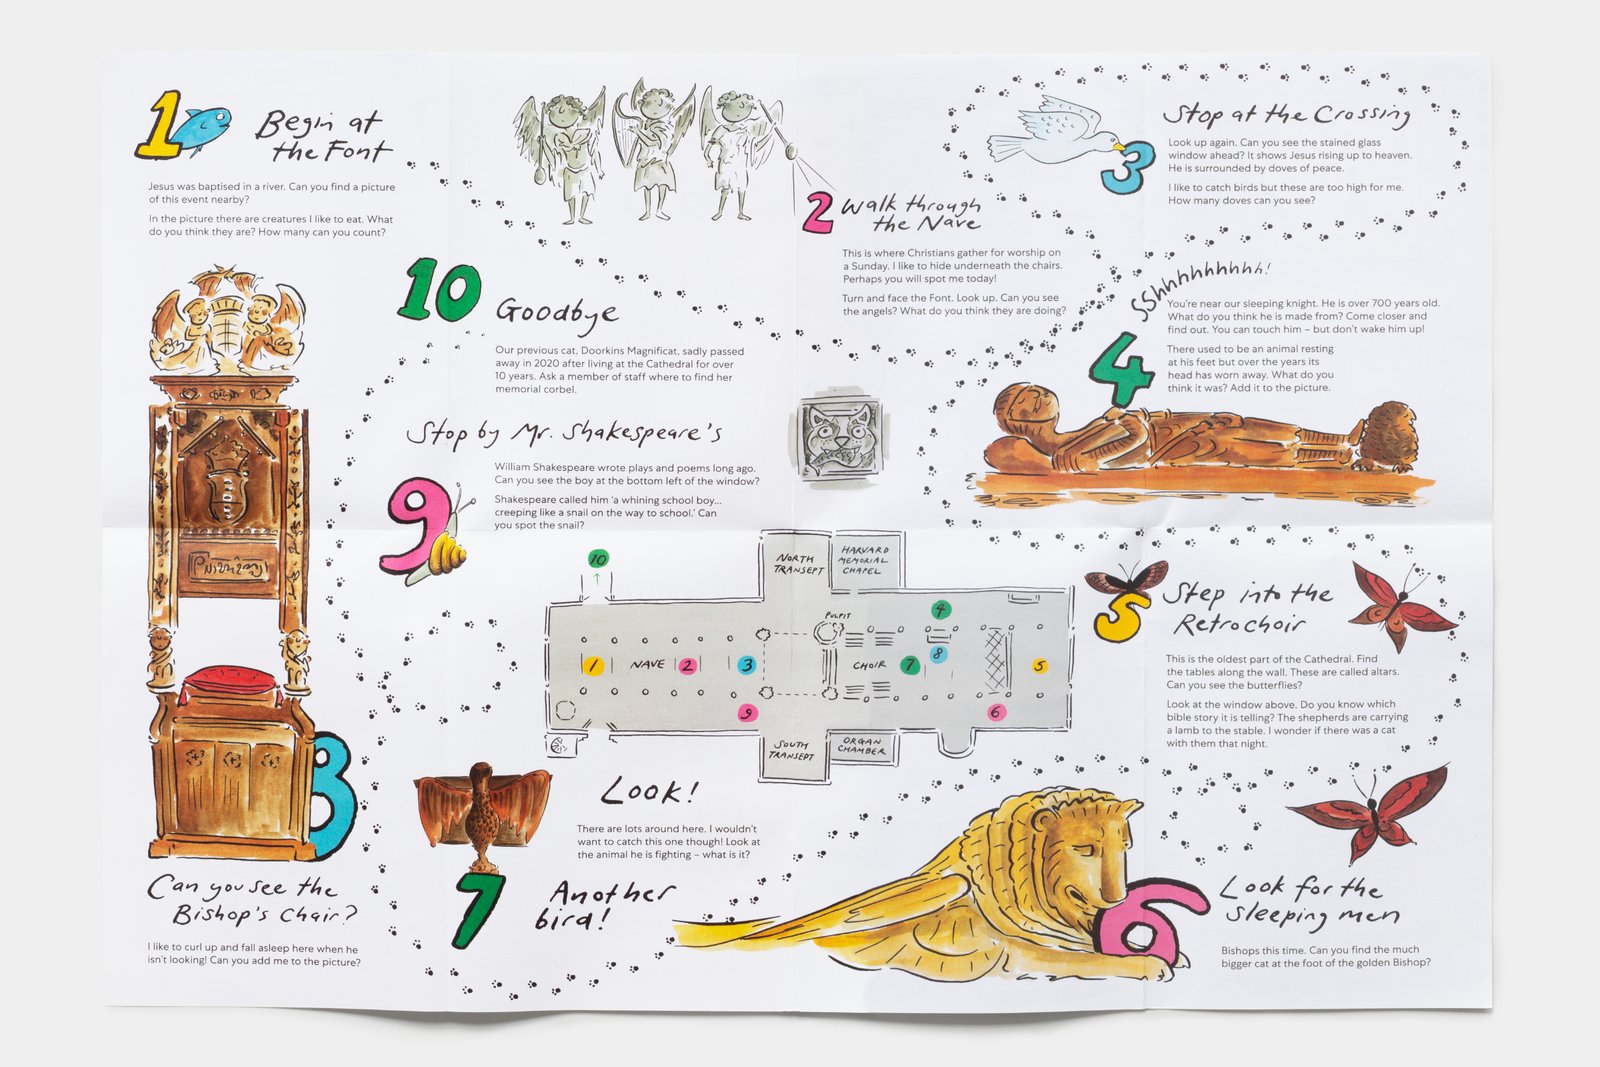 1
Begin at
the Font
Jesus was baptised in a river. Can you find a picture
of this event nearby?
In the picture there are creatures I like to eat. What
do you think they are? How many can you count?
2
Walk through
the Nave
This is where Christians gather for worship on
a Sunday. I like to hide underneath the chairs.
Perhaps you will spot me today!
Turn and face the Font. Look up. Can you see
the angels? What do you think they are doing?
3
Stop at the Crossing
Look up again. Can you see the stained glass
window ahead? It shows Jesus rising up to heaven.
He is surrounded by doves of peace.
I like to catch birds but these are too high for me.
How many doves can you see?
4
Sshhhhhhhhh!
You're near our sleeping knight. He is over 700 years old.
What do you think he is made from? Come closer and
find out. You can touch him – but don't wake him up!
There used to be an animal resting
at his feet but over the years its
head has worn away. What do you
think it was? Add it to the picture.
5
Step into the
Retrochoir
This is the oldest part of the Cathedral. Find
the tables along the wall. These are called altars.
Can you see the butterflies?
Look at the window above. Do you know which
bible story it is telling? The shepherds are carrying
a lamb to the stable. I wonder if there was a cat
with them that night.
6
Look for the
sleeping men
Bishops this time. Can you find the much
bigger cat at the foot of the golden Bishop?
7
Another
bird!
Look!
There are lots around here. I wouldn't
want to catch this one though! Look at
the animal he is fighting – what is it?
8
Can you see the
Bishop's Chair?
I like to curl up and fall asleep here when he
isn't looking! Can you add me to the picture?
9
Stop by Mr. Shakespeare's
William Shakespeare wrote plays and poems long ago.
Can you see the boy at the bottom left of the window?
Shakespeare called him 'a whining school boy...
creeping like a snail on the way to school.' Can
you spot the snail?
10
Goodbye
Our previous cat, Doorkins Magnificat, sadly passed
away in 2020 after living at the Cathedral for over
10 years. Ask a member of staff where to find her
memorial corbel.
10
NORTH
TRANSEPT
HARVARD
MEMORIAL
CHAPEL
PULPIT
4
1
NAVE
2
3
CHOIR
7
8
5
9
6
SOUTH
TRANSEPT
ORGAN
CHAMBER